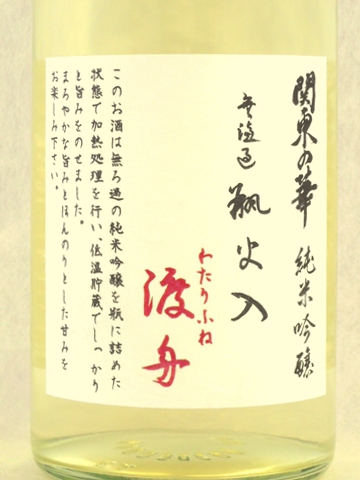 関東の華 純米吟醸
無濾過 瓶火入
わたりふね
渡舟
このお酒は無ろ過の純米吟醸を瓶に詰めた
状態で加熱処理を行い、低温貯蔵でしっかり
と旨みをのせました。
まろやかな旨みとほんのりとした甘みを
お楽しみ下さい。